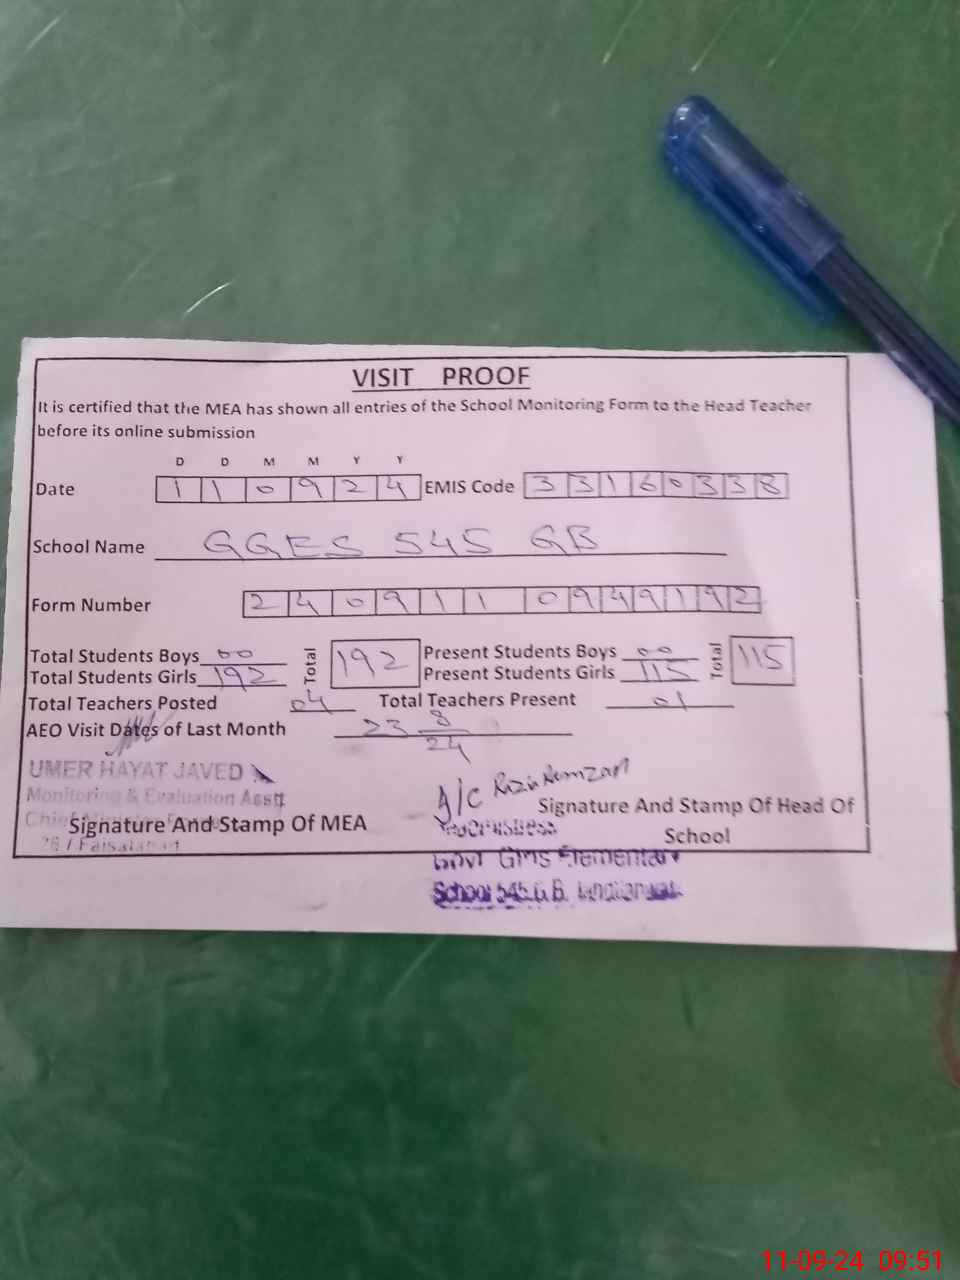 VISIT PROOF
It is certified that the MEA has shown all entries of the School Monitoring Form to the Head Teacher
before its online submission
D D M M Y Y
Date 1 1 0 9 2 4 EMIS Code 3 3 1 6 0 3 3 8
School Name GGES 545 GB
Form Number 2 4 0 9 1 1 0 9 4 9 1 9 2
Total Students Boys 00 Total 192 Present Students Boys 00 Total 115
Total Students Girls 192 Present Students Girls 115
Total Teachers Posted 04 Total Teachers Present 01
AEO Visit Dates of Last Month 23 8
24
UMER HAYAT JAVED
Monitoring & Evaluation Asstt
Chief
Signature And Stamp Of MEA
Faisalabad
I/C
Signature And Stamp Of Head Of
School
Govt Girls Elementary
School 545 G.B.
11-09-24 09:51